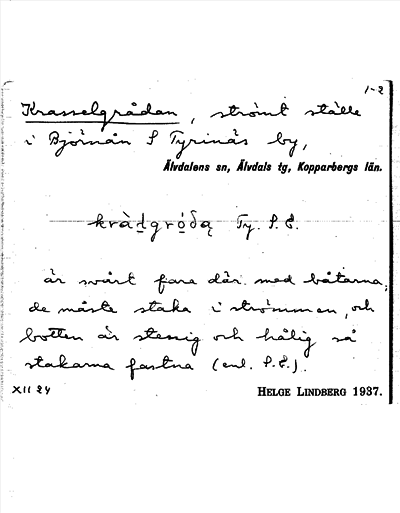 1-2
Krasselgrådan, strömt ställe
i Björnån S Tyrinäs by,
Älvdalens sn, Älvdals tg, Kopparbergs län.
Ty. P. E.
är svårt fara där med båtarna,
de måste staka i strömmen, och
botten är stenig och hålig så
stakarna fastna (enl. P. E.).
XII 24
HELGE LINDBERG 1937.